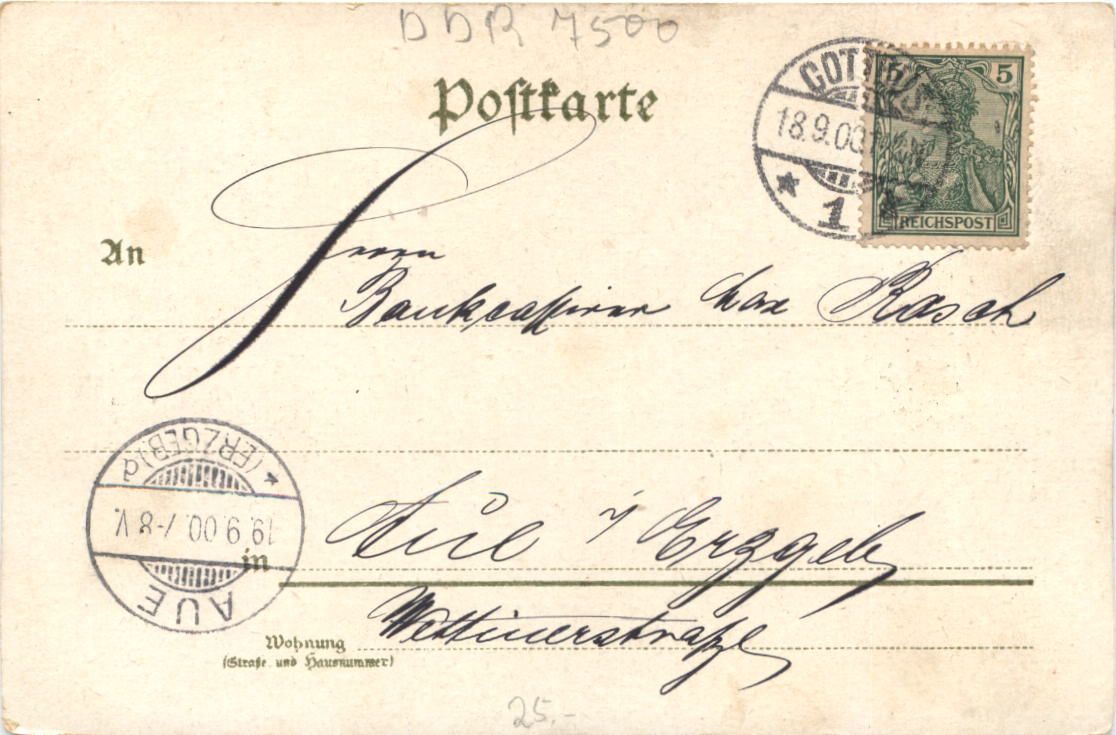 DDR 7500
Postkarte
COTTBUS
18.9.00
* 1
5
REICHSPOST
An
Herrn
Bankcassirer Max Rasch
AUE
19.9.00. 7-8 V.
* (ERZGEB.) d
in
Aue i/Erzgeb
Wettinerstraße
Wohnung
(Straße und Hausnummer)
25.-